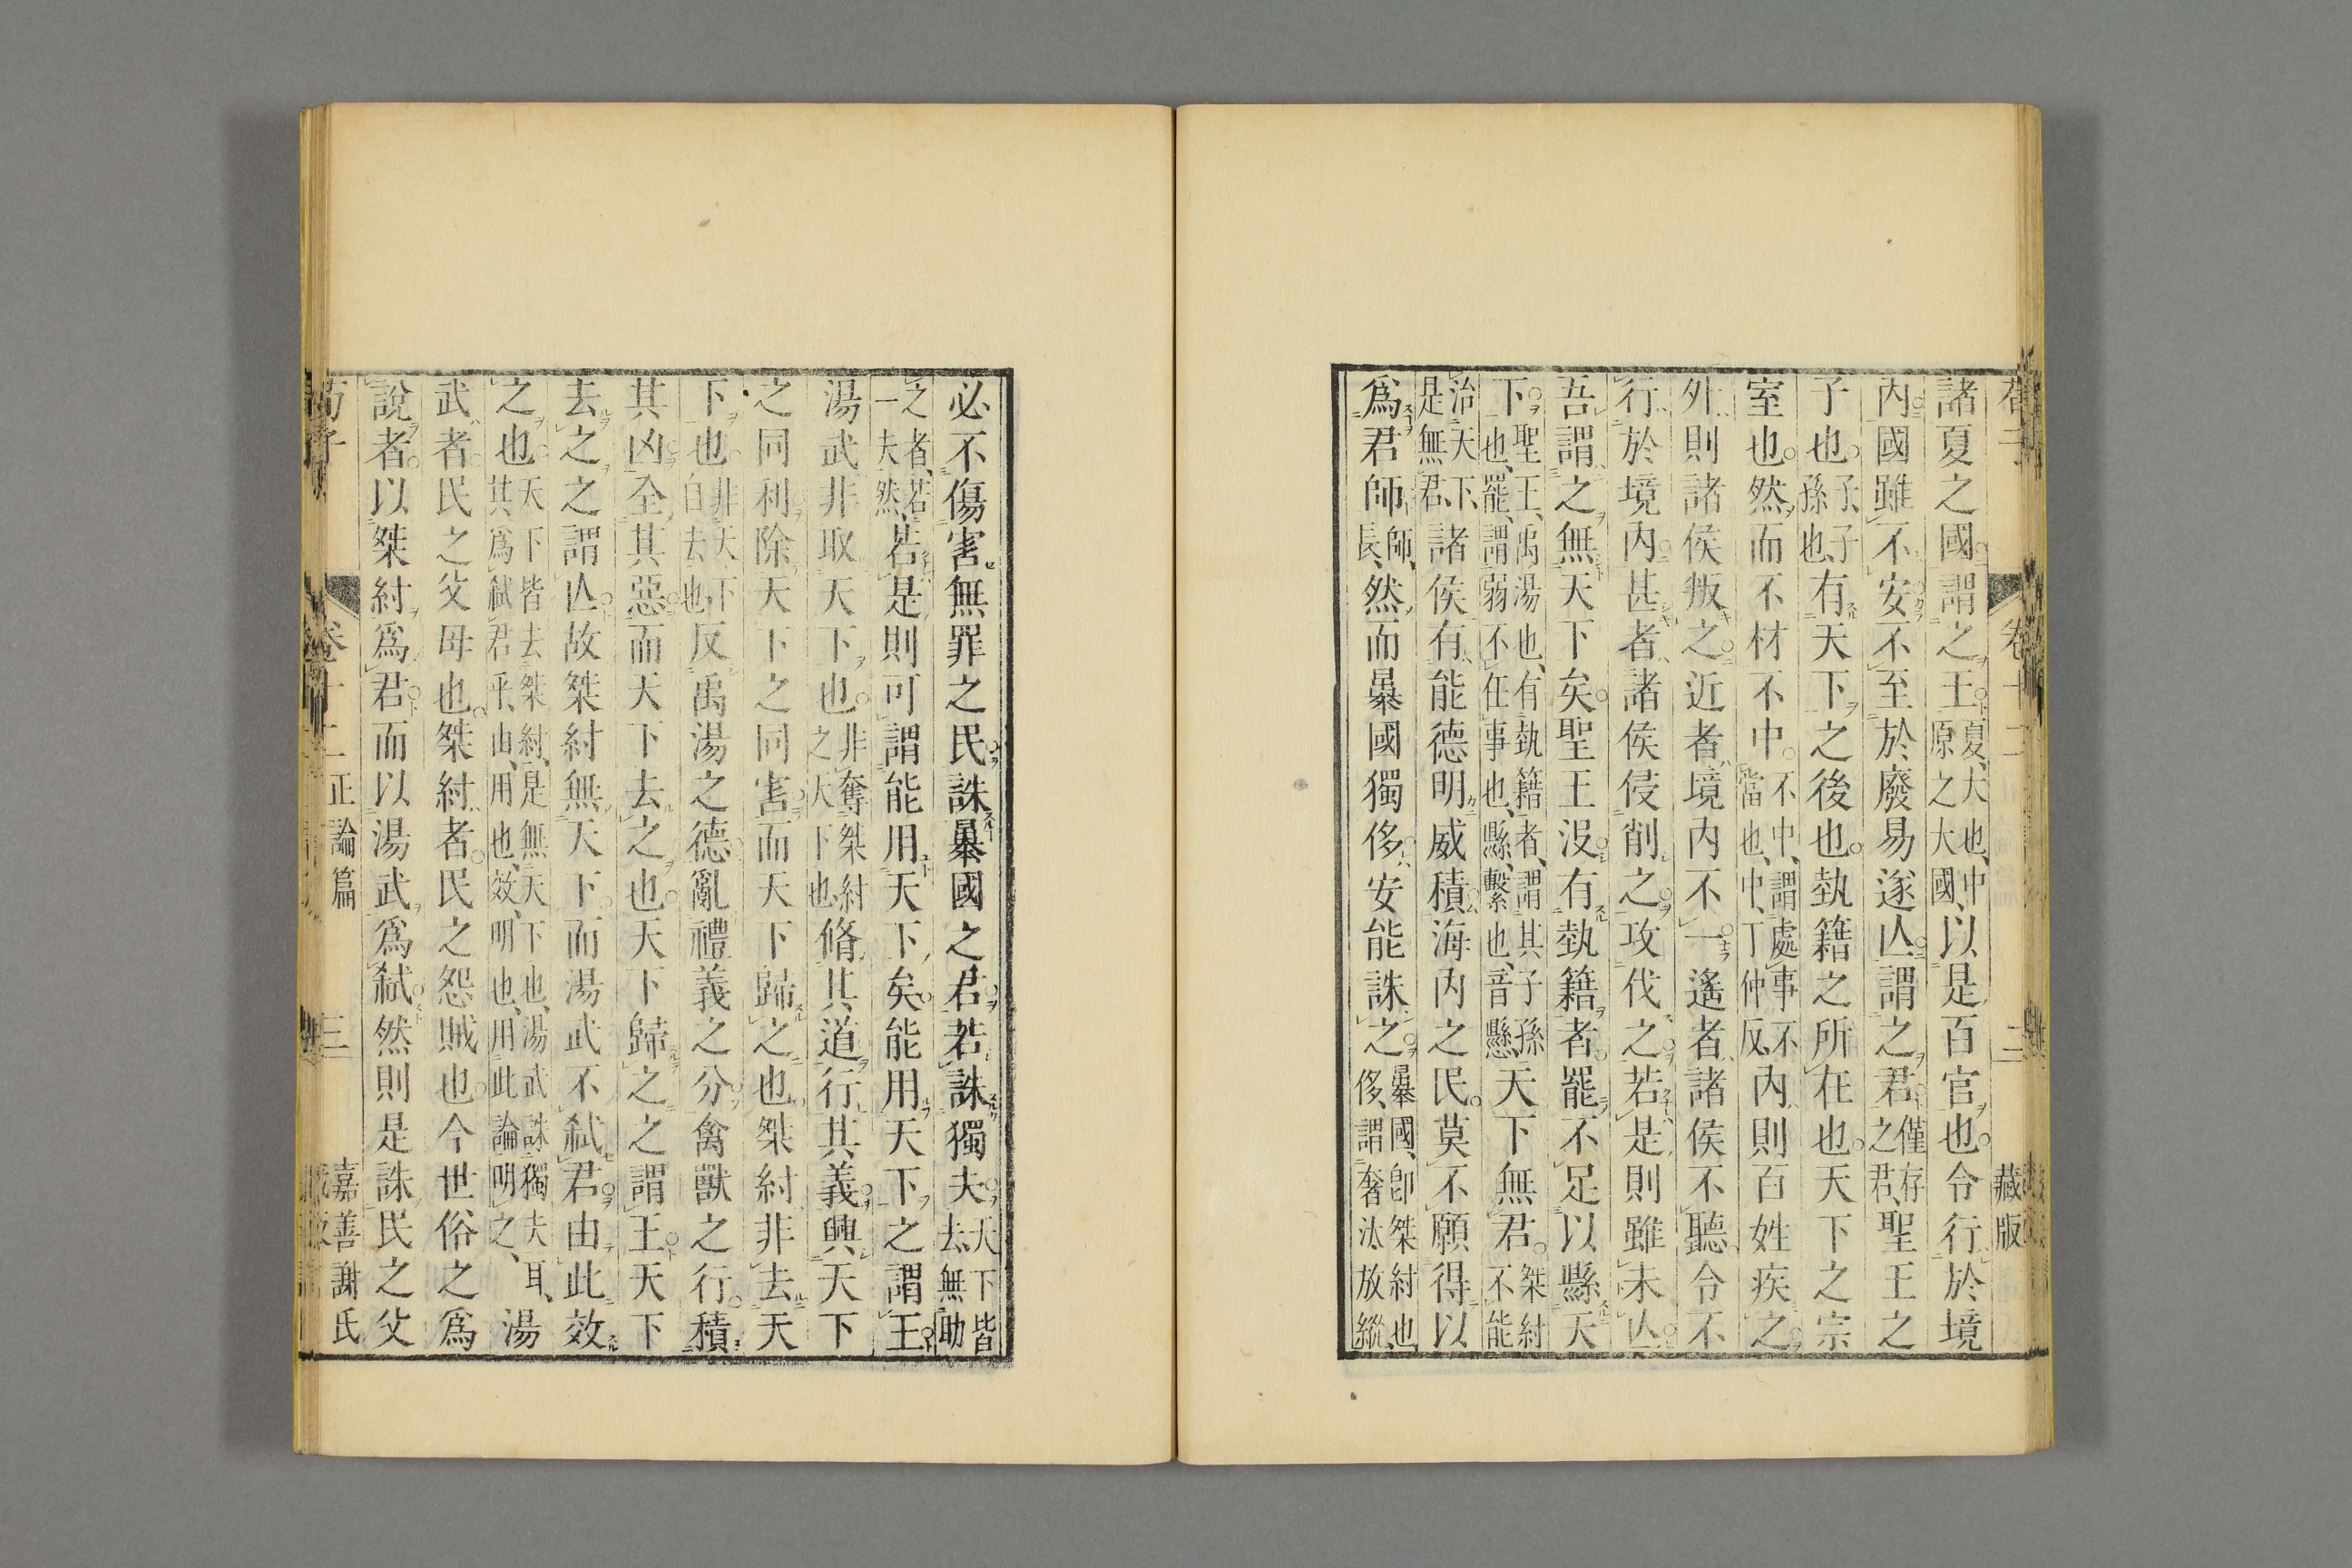 諸夏之國謂之王夏大也中原之大國以是百官也令行於境
內國雖不安不至於廢易遂亾謂之君僅存之君聖王之
子也子子孫也有天下之後也埶籍之所在也天下之宗
室也然而不材不中不中謂處事不當也中丁仲反內則百姓疾之
外則諸侯叛之近者境內不一遙者諸侯不聽令不
行於境內甚者諸侯侵削之攻伐之若是則雖未亾
吾謂之無天下矣聖王沒有埶籍者罷不足以縣天
下聖王禹湯也有埶籍者謂其子孫也罷謂弱不任事也縣繫也音懸天下無君桀紂不能
治天下是無君諸侯有能德明威積海內之民莫不願得以
爲君師師長然而暴國獨侈安能誅之暴國卽桀紂也侈謂奢汰放縱
卷十二
二
藏版
必不傷害無罪之民誅暴國之君若誅獨夫天下皆去無助
之者若一夫然若是則可謂能用天下矣能用天下之謂王
湯武非取天下也非奪桀紂之天下也脩其道行其義興天下
之同利除天下之同害而天下歸之也桀紂非去天
下也非天下自去也反禹湯之德亂禮義之分禽獸之行積
其凶全其惡而天下去之也天下歸之之謂王天下
去之之謂亾故桀紂無天下而湯武不弒君由此效
之也天下皆去桀紂是無天下也湯武誅獨夫耳其爲弒君乎由用也效明也用此論明之湯
武者民之父母也桀紂者民之怨賊也今世俗之爲
說者以桀紂爲君而以湯武爲弒然則是誅民之父
荀子
卷十二
正論篇
三
嘉善謝氏